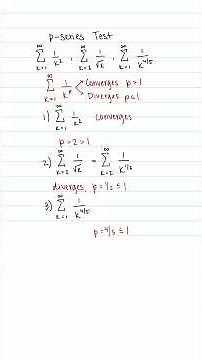 p-series Test
∞ ∑ k=1 1/k², ∞ ∑ k=2 1/√k, ∞ ∑ k=1 1/k^4/5
∞ ∑ k=1 1/k^p Converges p > 1
Diverges p ≤ 1
1) ∞ ∑ k=1 1/k² converges
p = 2 > 1
2) ∞ ∑ k=2 1/√k = ∞ ∑ k=2 1/k^1/2
diverges, p = 1/2 ≤ 1
3) ∞ ∑ k=1 1/k^4/5
p = 4/5 ≤ 1